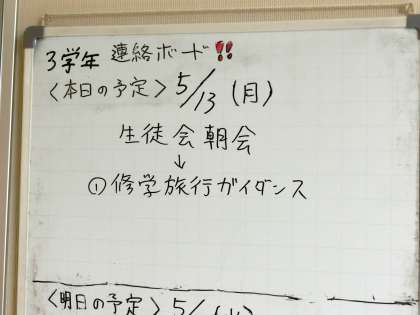 3学年 連絡ボード‼
〈本日の予定〉5/13 (月)
生徒会朝会
↓
①修学旅行ガイダンス
〈明日の予定〉5/